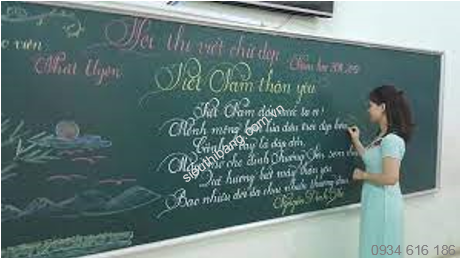 Hội thi viết chữ đẹp - Năm học
viên
Nhật Uyên
Việt Nam thân yêu
Việt Nam đất nước ta ơi!
Mênh mông biển lúa đâu trời đẹp hơn
Cánh cò bay lả dập dờn,
Mây mờ che đỉnh Trường Sơn sớm chiều
Quê hương biết mấy thân yêu
Bao nhiêu đời đã chịu nhiều thương đau
Nguyễn Đình Thi
sieuthibang.com.vn
0934 616 186